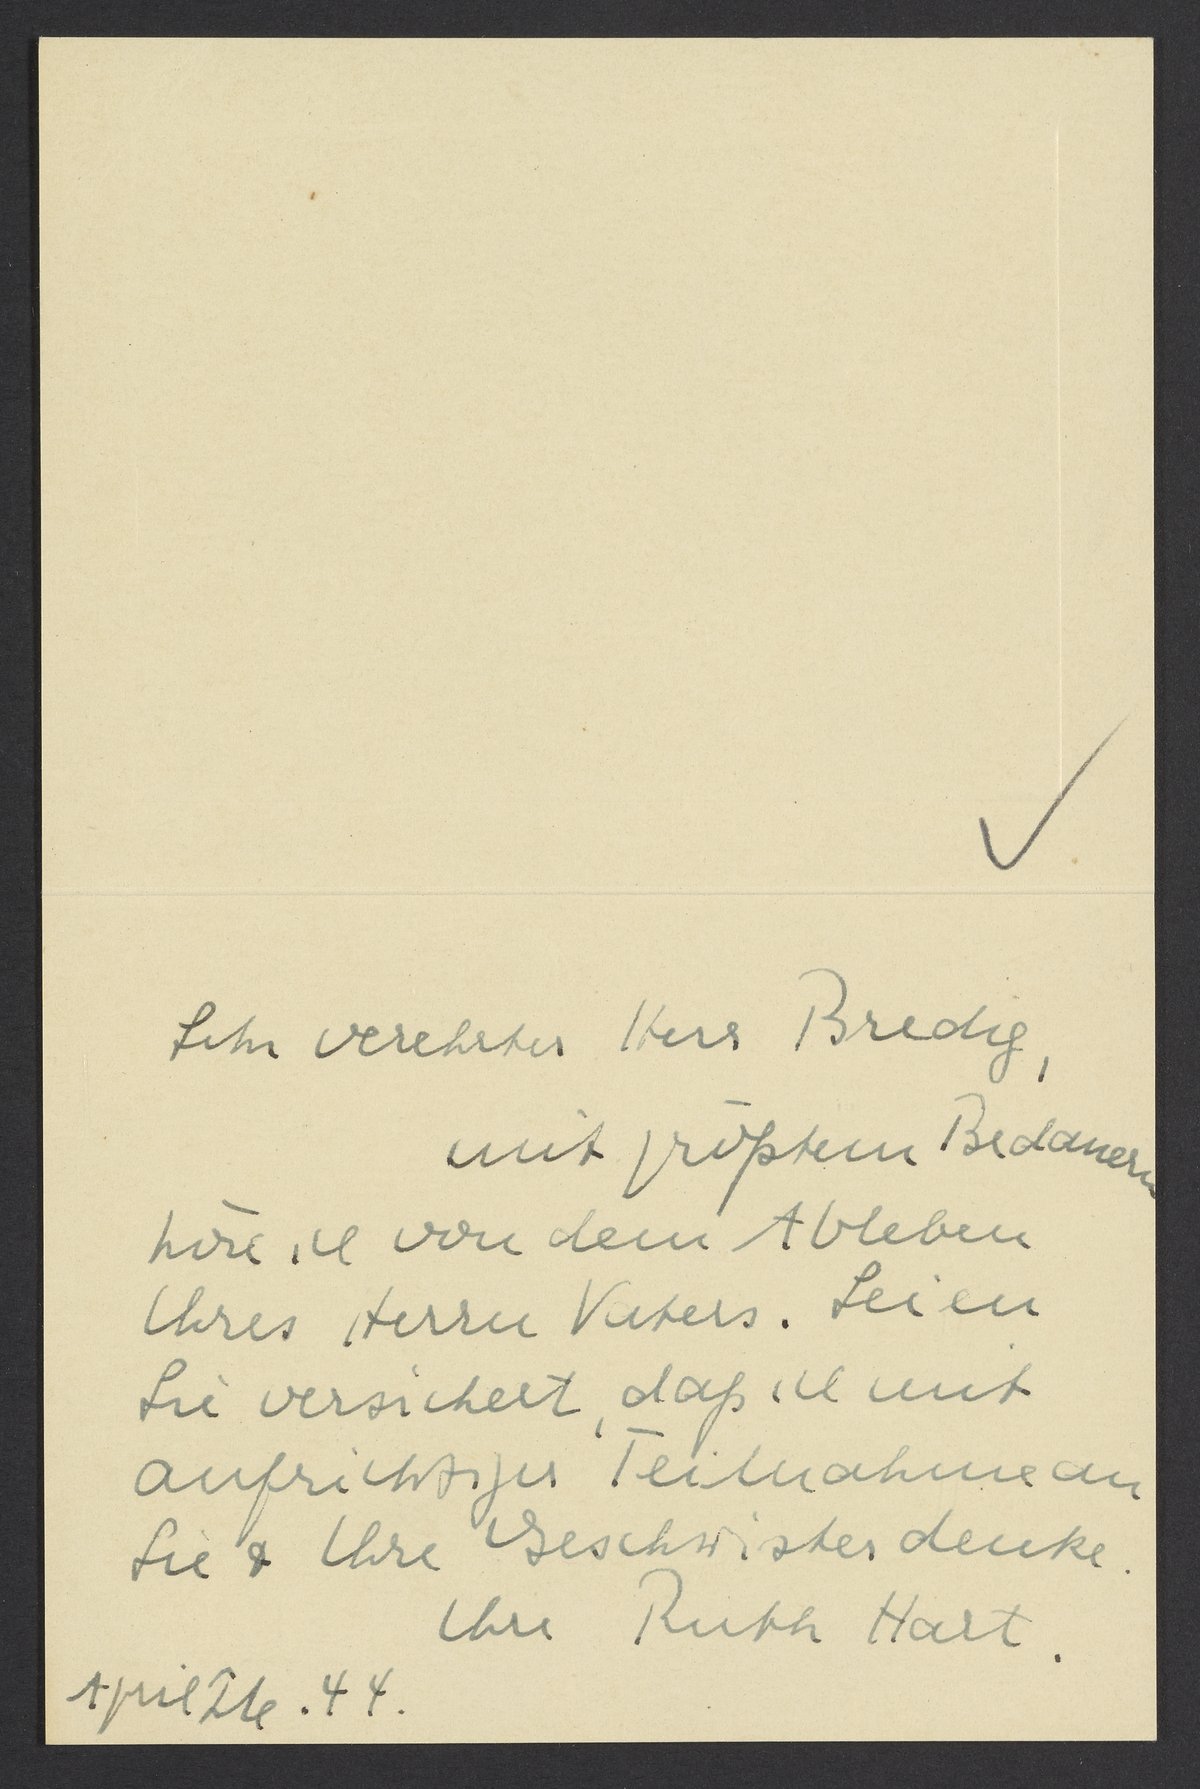 Sehr verehrter Herr Bredig,
mit größtem Bedauern
höre ich von dem Ableben
Ihres Herrn Vaters. Seien
Sie versichert, daß ich mit
aufrichtiger Teilnahme an
Sie & Ihre Geschwister denke.
Ihre Ruth Hart.
April .44.